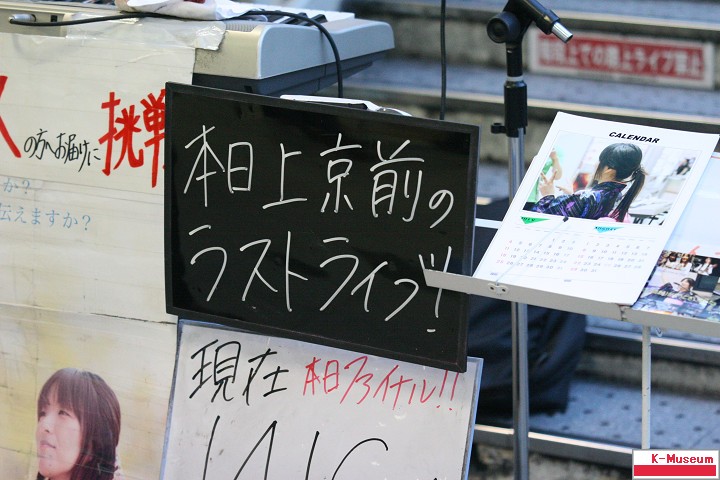 の方へお届けに挑戦
か?
伝えますか?
本日上京前の
ラストライブ!!
現在 本日ファイナル!!
CALENDAR
階段上での路上ライブ禁止
K-Museum